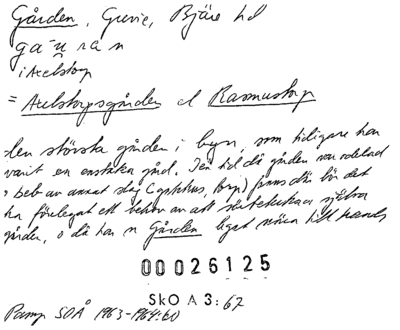 Gården, Grevie, Bjäre hd
ga-ṷ rа̄n
i Axelstorp
= Axelstorpsgården el Rasmustorp
den största gården i byn, som tidigare har
varit en enstaka gård. Den tid då gården var odelad
o beb av annat slag (gatehus, torp) fanns där bör det
ha förelegat ett behov av att särbeteckna själva
gården, o då har n Gården legat nära till hands
00026125
SkO A 3:67
Pamp SOÅ 1963-1964:60